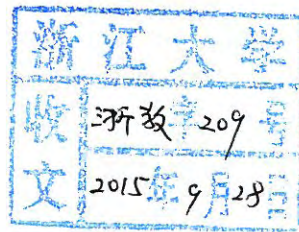 浙江大学
收文
浙教字209号
2015年9月28日